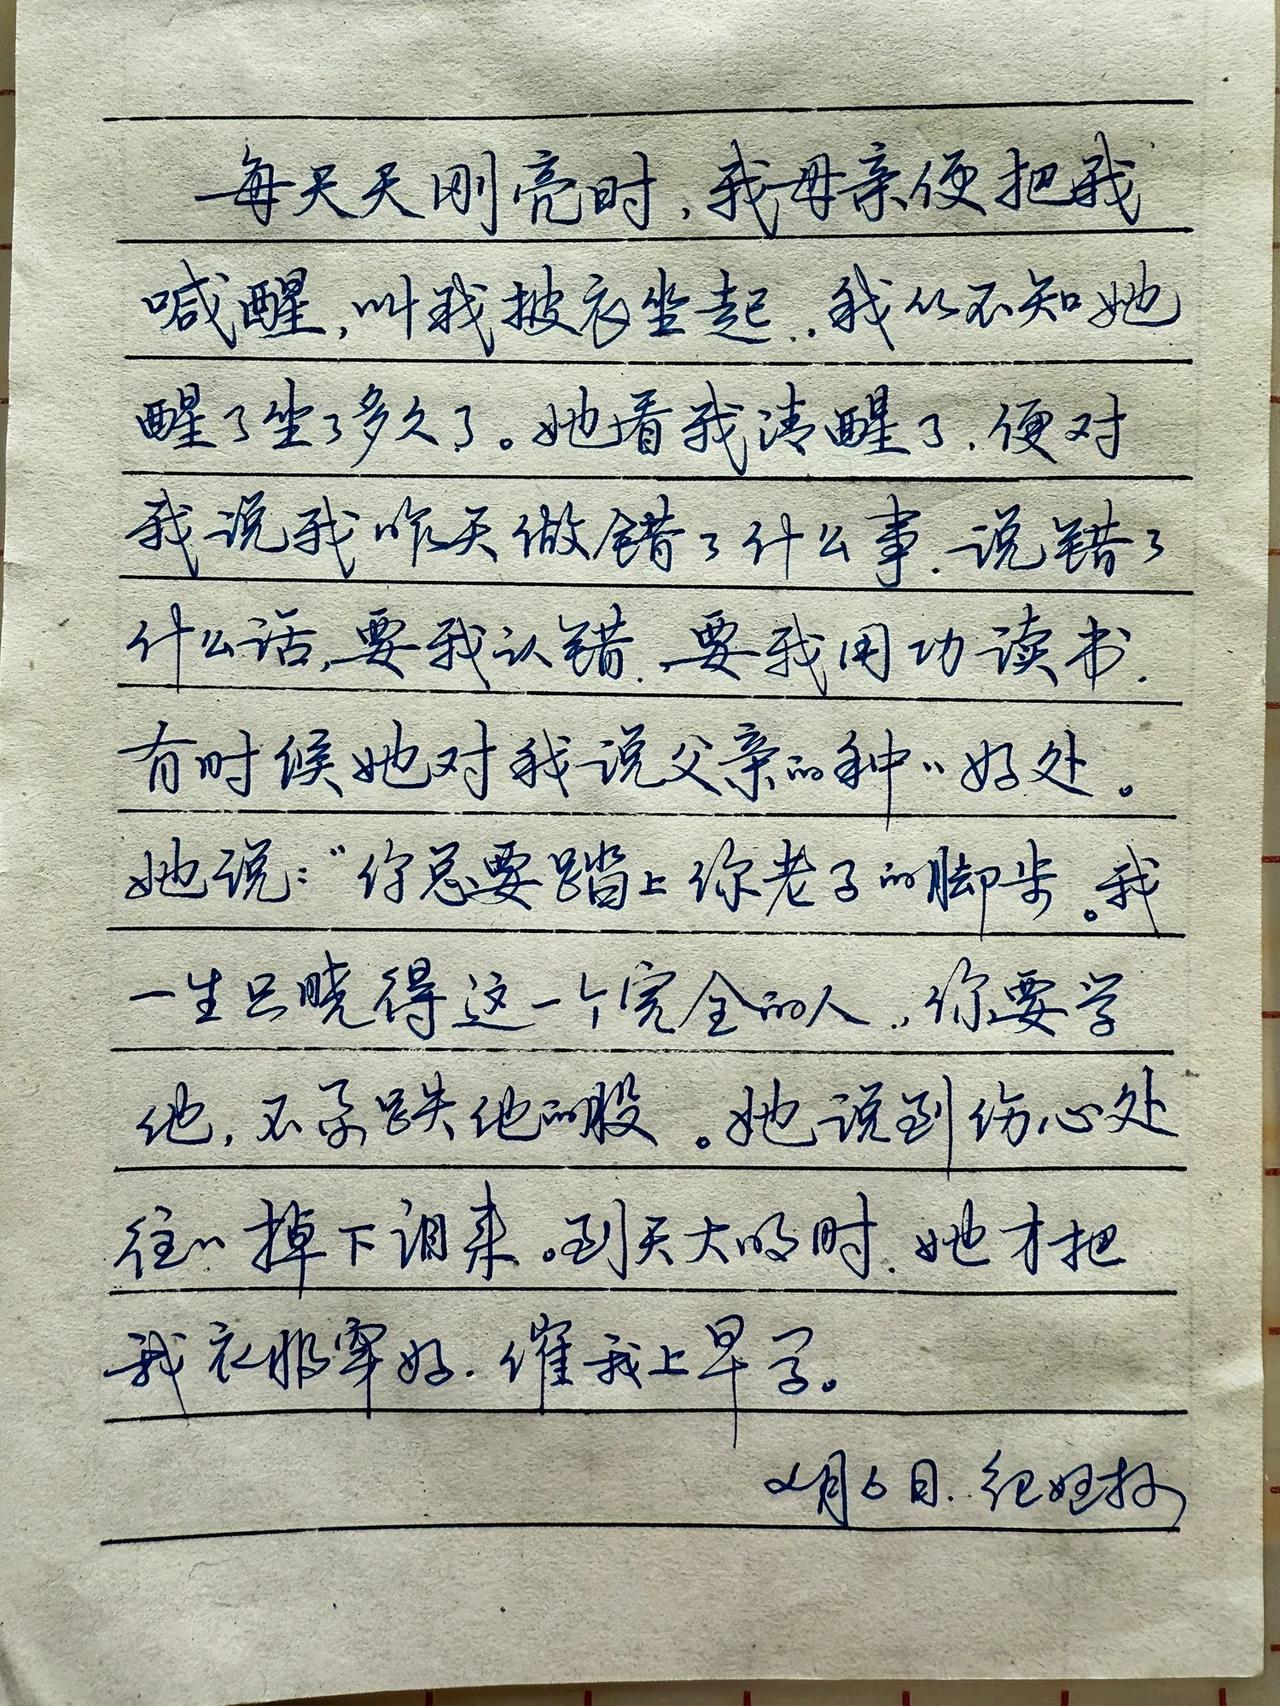 每天天刚亮时,我母亲便把我
喊醒,叫我披衣坐起.我从不知她
醒了坐了多久了。她看我清醒了,便对
我说我昨天做错了什么事.说错了
什么话,要我认错.要我用功读书.
有时候她对我说父亲的种〃好处。
她说:“你总要踏上你老子的脚步。我
一生只晓得这一个完全的人.你要学
他,不要跌他的股。她说到伤心处
往〃掉下泪来。到天大明时.她才把
我衣服穿好.催我上早学。
月6日.